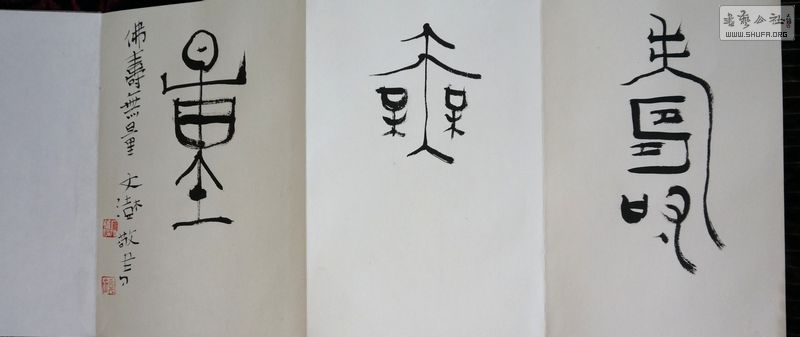 壽
無
量
佛壽無量 文澍敬書
書藝公社
WWW.SHUFA.ORG